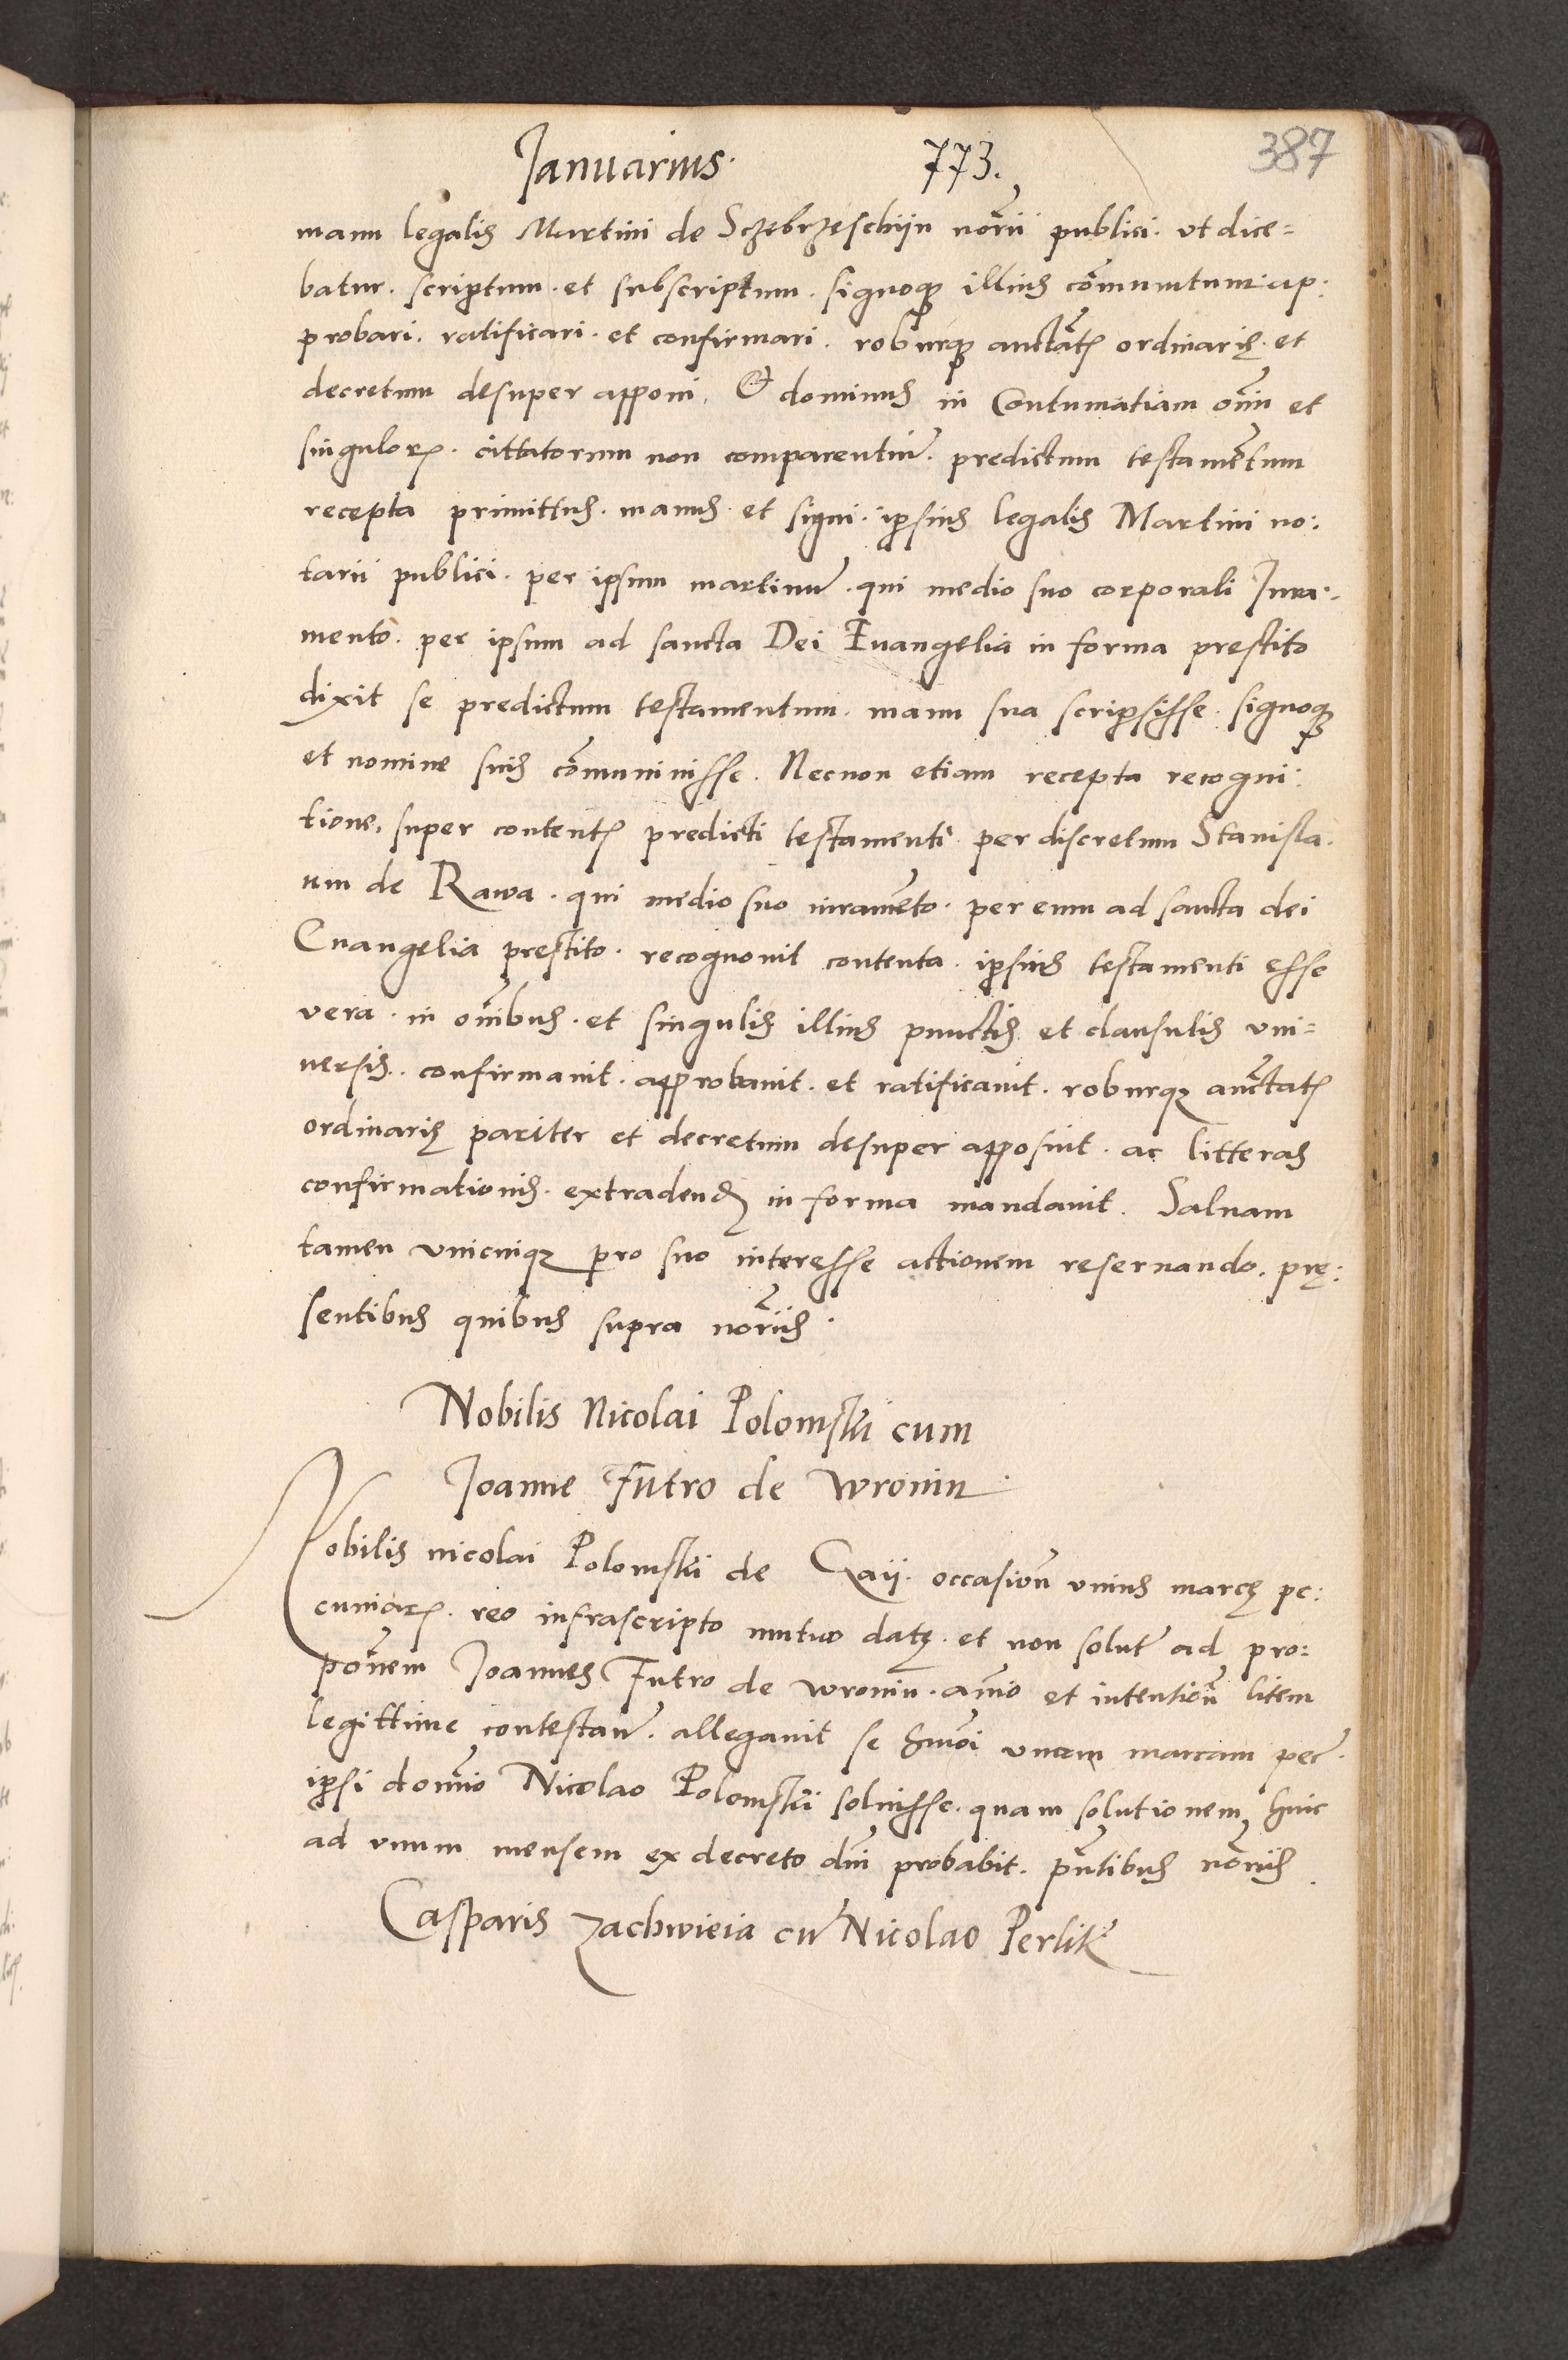 Ianuarius. 773. 387
manu legalis Martini de Sczebrzeschijn no͞rii publici. ut dice=
batur. scriptum. et subscriptum. signoq₃ illius co͞munitum. ap:
probari. ratificari. et confirmari. roburq₃ auct͞atꝭ ordinarię. et
decretum desuper apponi. Et dominus in Contumatiam om͞niu et
singuloꝝ. cittatorum non comparentiu͞. predictum testame͞ntum
recepta primittus. manus. et signi. ipsius legalis Martini no:
tarii publici. per ipsum martinu͞. qui medio suo corporali Iura:
mento. per ipsum ad sancta Dei Euangelia in forma prestito
dixit se predictum testamentum. manu sua scripsisse. signoq₃
et nomine suis co͞muninisse. Necnon etiam recepta recogni:
tione. super contentꝭ predicti testamenti per discretum Stanisla.
um de Rawa. qui medio suo iurame͞to. per eum ad sancta dei
Euangelia prestito. recognouit contenta. ipsius testamenti esse
vera. in o͞nibus. et singulis illius punctis et clausulis vni=
uersis. confirmauit. approbauit. et ratificauit. roburq₃ au͞ctatꝭ
ordinarię pariter et decretum desuper apposuit. ac litteras
confirmationis. extradendꝭ in forma mandauit. Saluam
tamen vnicuiq₃ pro suo interesse actionem reseruando. prę:
sentibus quibus supra no͞riis.
Nobilis Nicolai Polomski cum
Ioanne Futro de Wronin
Nobilis nicolai Polomski de occasion͞ vnius marcę pe:
cuniaꝝ. reo infrascripto mutuo datę. et non solut͞ ad pro:
po͞nem Ioannes Futro de Wronin. a͞nimo et intention͞ litem
legittime contestan͞. allegauit se hm͞oi vnam marcam pec͞.
ipsi domi͞no Nicolao Polomski soluisse. quam solutionem huic
ad vnum mensem ex decreto dn͞i probabit. pn͞tibus no͞riis.
Casparis Zachwieia cu͞ Nicolao Perlik